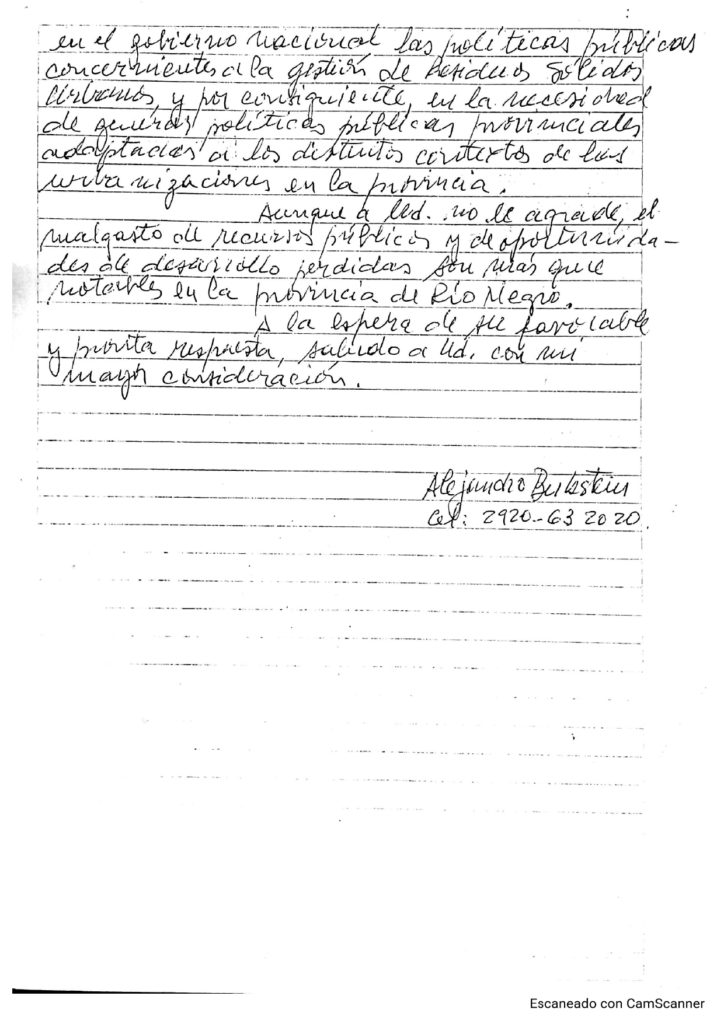 en el gobierno nacional las políticas públicas
concernientes a la gestión de Residuos Sólidos
Urbanos, y por consiguiente, en la necesidad
de generar políticas públicas provinciales
adaptadas a los distintos contextos de las
urbanizaciones en la provincia.
Aunque a Ud. no le agrade, el
malgasto de recursos públicos y de oportunida-
des de desarrollo perdidas son más que
notables en la provincia de Río Negro.
A la espera de su favorable
y pronta respuesta, saludo a Ud. con mi
mayor consideración.
Alejandro
Cel: 2920-63 2020.
Escaneado con CamScanner